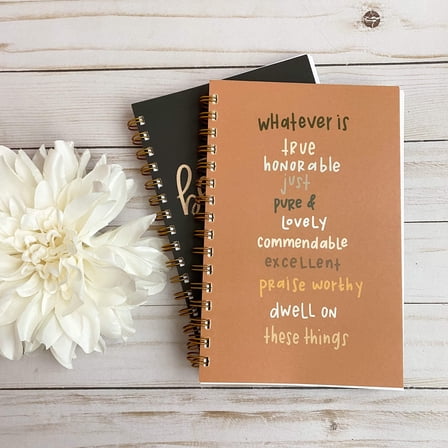 whatever is
true
honorable
just
pure &
lovely
commendable
excellent
praise worthy
dwell on
these things